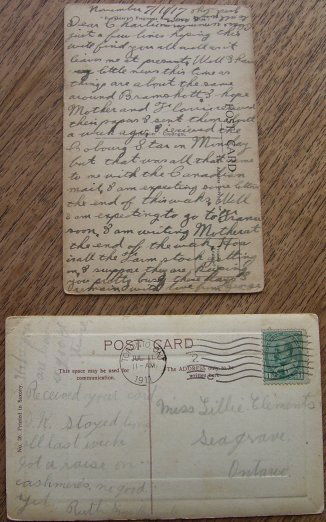 November 7/1917
Dear Charlie
just a few lines hoping this
will find you all well as it
leaves me at present. Well I have
little news this time as
things are about the same
round Bramshott I hope
Mother and
their papers I sent them
a week ago. I received the
Cobourg Star in Monday
but that was all that came
to me with the Canadian
mail, I am expecting some letters
the end of this week, Well
I am expecting to go to France
soon, I am writing Mother at
the end of the week. How
is all the farm stock getting
on, I suppose they are keeping
you pretty busy
remain with love from George
POST CARD
POST CARD
TORONTO, ONT
JUL 11
11-AM
1911
This space may be used for
communication.
The ADDRESS only to be
written here.
No. 30. Printed in Saxony
Received your card
O.K. Stayed home
all last week
got a raise on
cashmeres, no good
yet.
Ruth
Miss Lillie Clements
Seagrave
Ontario